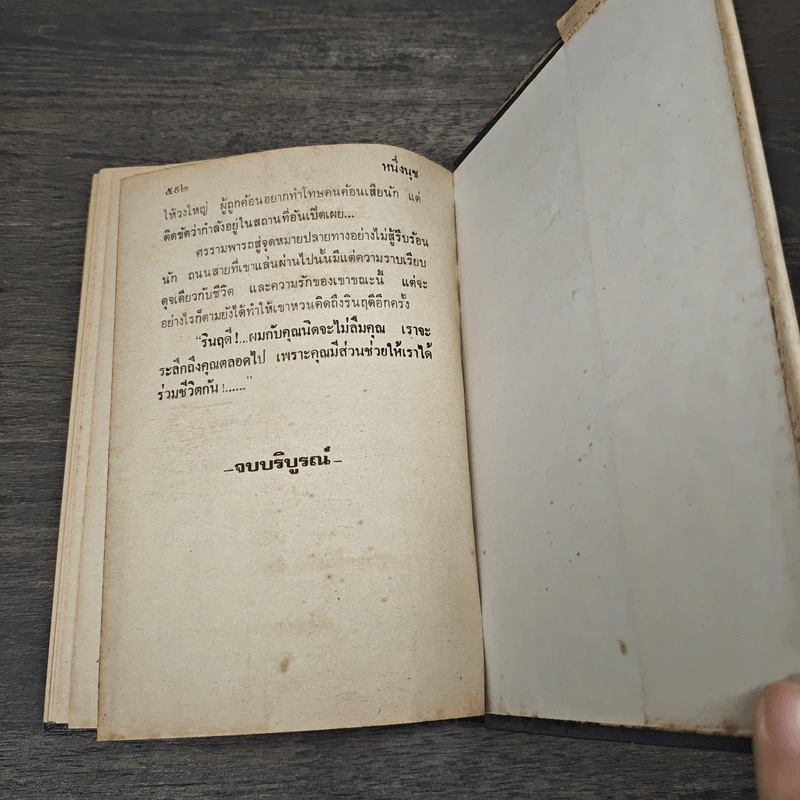 ๕๙๒
หนึ่งนุช
ให้วงใหญ่ ผู้ถูกค้อนอยากทำโทษคนค้อนเสียนัก แต่
ติดขัดว่ากำลังอยู่ในสถานที่อันเปิดเผย...
ศรรามพารถสู่จุดหมายปลายทางอย่างไม่สู้รีบร้อน
นัก ถนนสายที่เขาแล่นผ่านไปนั้นมีแต่ความราบเรียบ
ดุจเดียวกับชีวิต และความรักของเขาขณะนี้ แต่จะ
อย่างไรก็ตามยังได้ทำให้เขาหวนคิดถึงรินฤดีอีกครั้ง
"รินฤดี!...ผมกับคุณนิดจะไม่ลืมคุณ เราจะ
ระลึกถึงคุณตลอดไป เพราะคุณมีส่วนช่วยให้เราได้
ร่วมชีวิตกัน!......"
–จบบริบูรณ์–